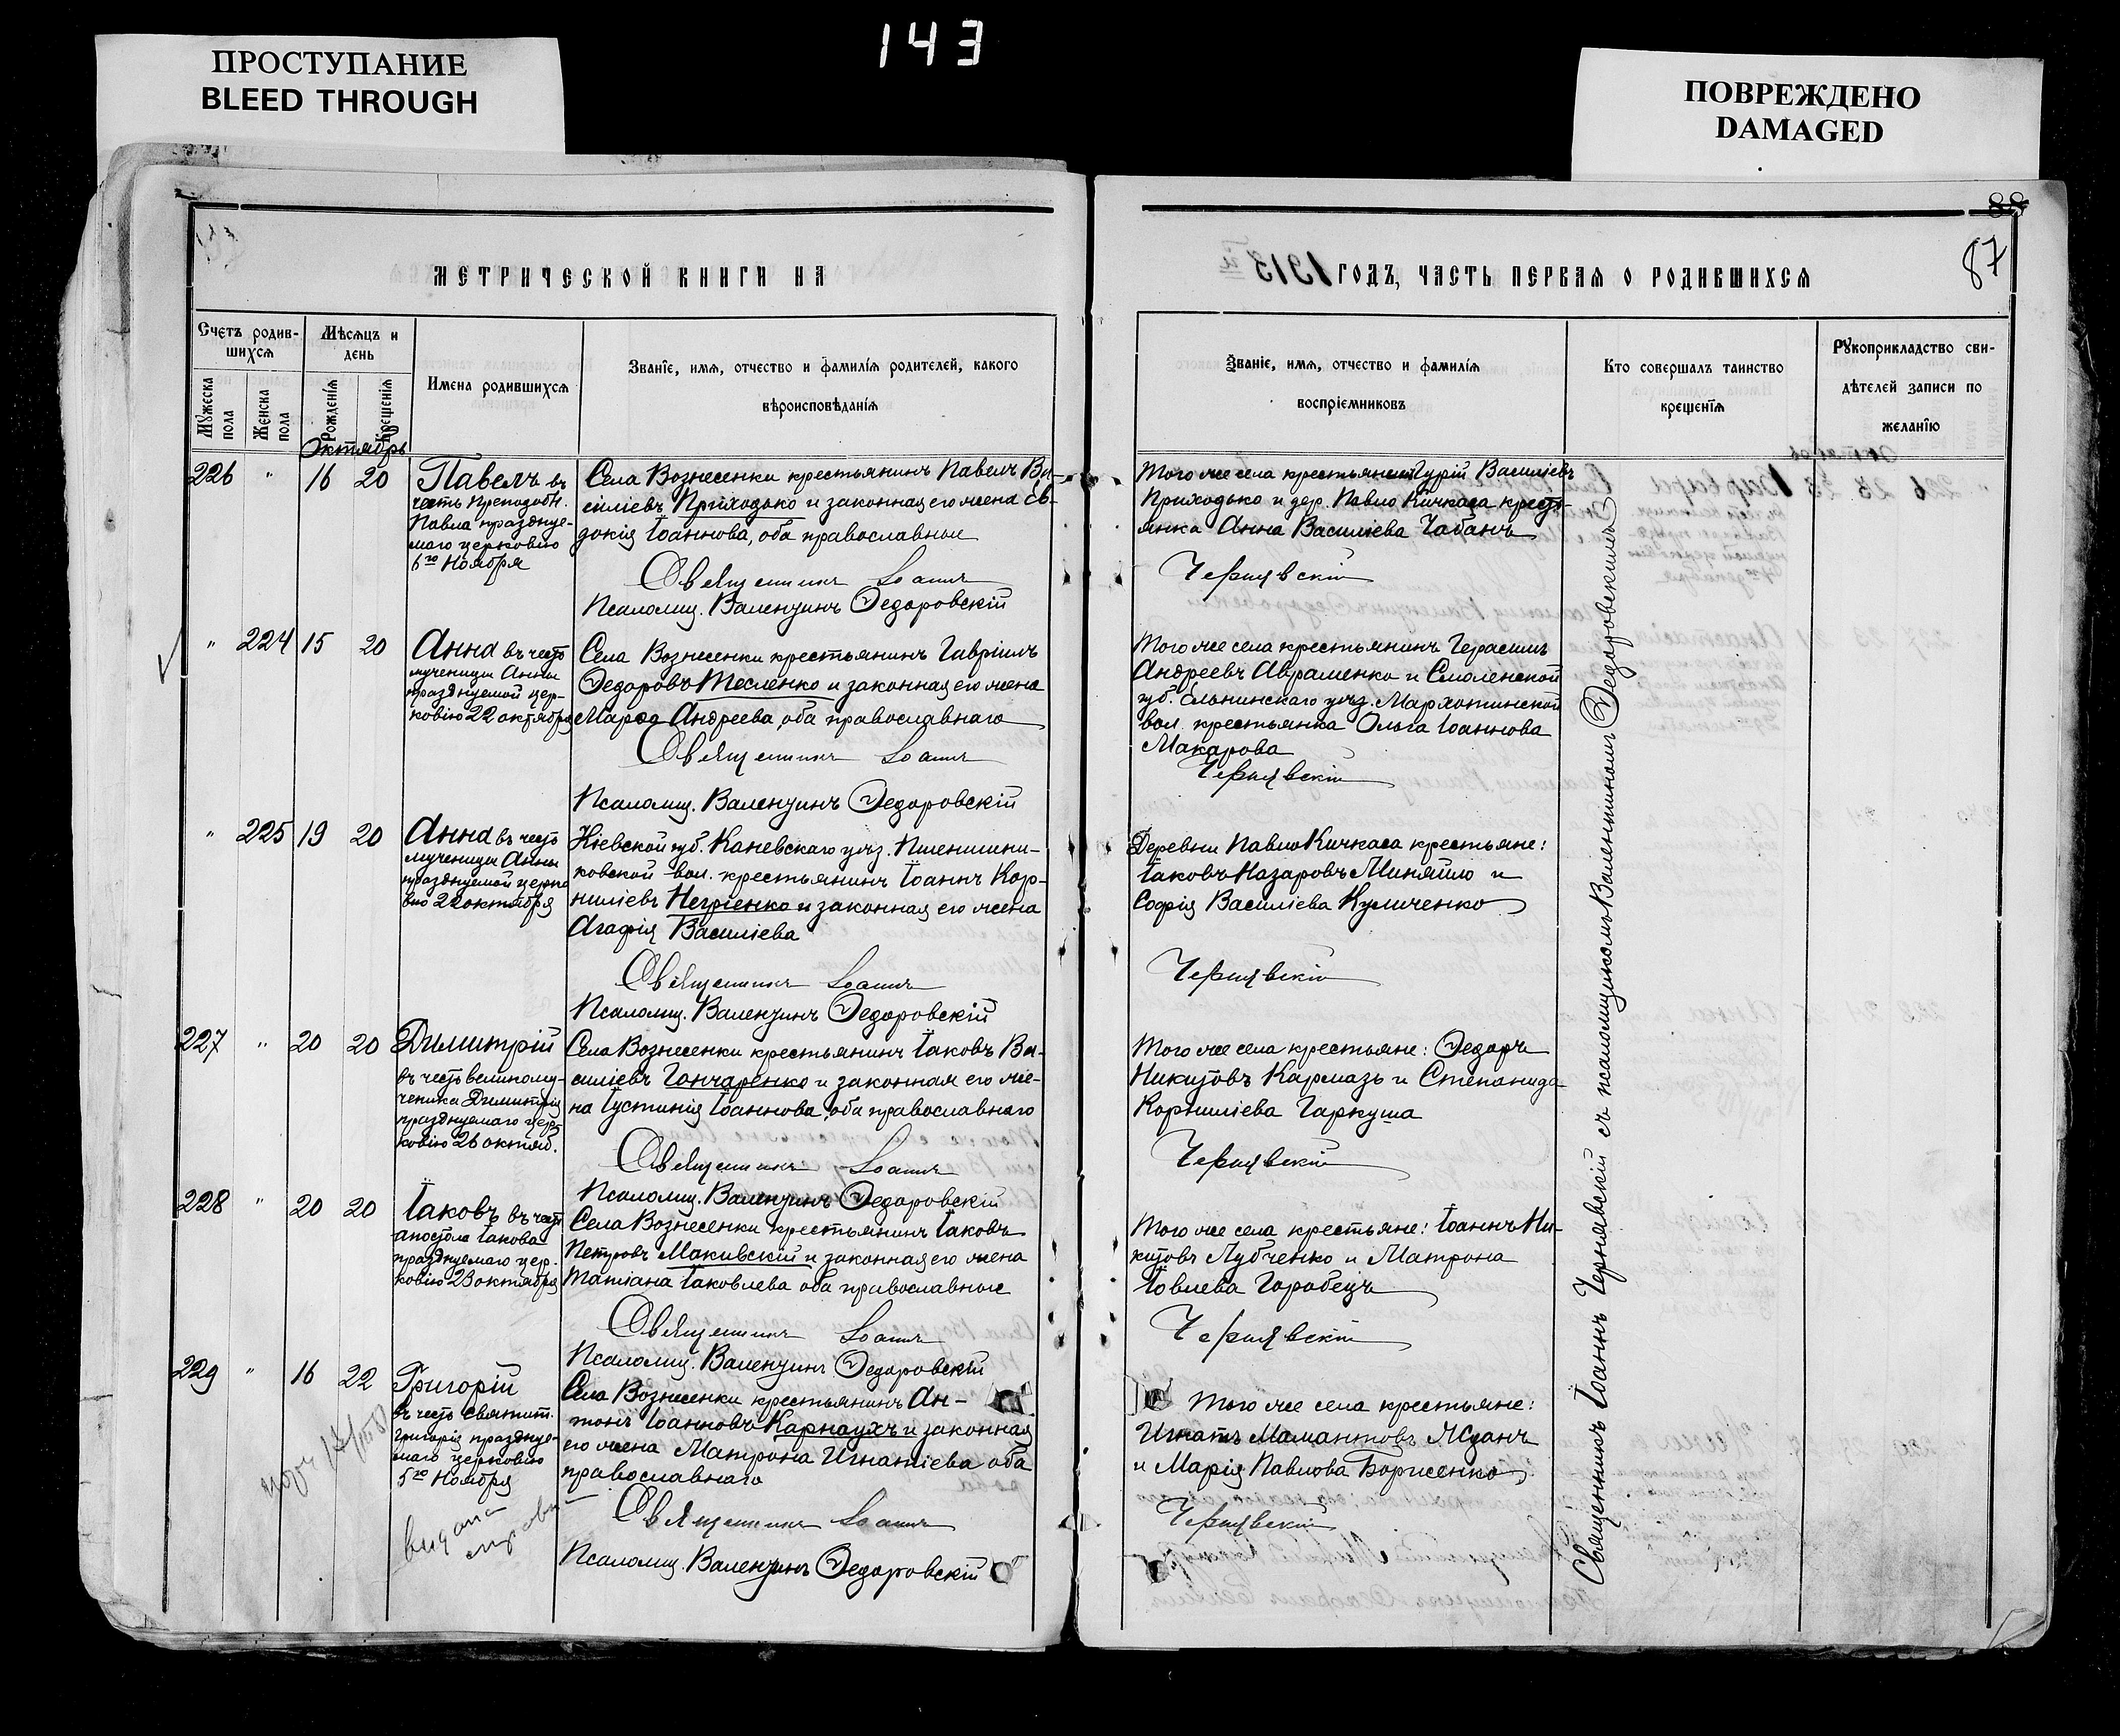 143
ПРОСТУПАНИЕ
BLEED THROUGH
ПОВРЕЖДЕНО
DAMAGED
88
87
МЕТРИЧЕСКОЙ КНИГИ НА
1913 ГОДЪ, ЧАСТЬ ПЕРВАЯ О РОДИВШИХСЯ
Счетъ родив-
шихся
Мѣсяцъ и
день
Мужеска
пола
Женска
пола
Рожденія
Крещенія
Имена родившихся
Званіе, имя, отчество и фамилія родителей, какого
вѣроисповѣданія
Званіе, имя, отчество и фамилія
воспріемниковъ
Кто совершалъ таинство
крещенія
Рукоприкладство сви-
дѣтелей записи по
желанію
Октябрь
226 " 16 20
Павелъ въ
честь Преподобн.
Павла праздну-
емаго церковію
6го Ноября
Села Вознесенки крестьянинъ Павелъ Ва-
силіевъ Приходько и законная его жена Ев-
докія Іоаннова, оба православные
Священникъ Іоаннъ
Псаломщ. Валентинъ Ѳедоровскій
Того же села крестьянинъ Гурій Василіевъ
Приходько и дер. Павло Кичкаса кресть-
янка Анна Василіева Чабанъ
Чернявскій
" 224 15 20
Анна въ честь
мученицы Анны
празднуемой цер-
ковію 22 октября
Села Вознесенки крестьянинъ Гавріилъ
Ѳедоровъ Тесленко и законная его жена
Марѳа Андреева, оба православнаго
Священникъ Іоаннъ
Псаломщ. Валентинъ Ѳедоровскій
Того же села крестьянинъ Герасимъ
Андреевъ Авраменко и Смоленской
губ. Ельнинскаго уѣзд. Мархоткинской
вол. крестьянка Ольга Іоаннова
Макарова
Чернявскій
" 225 19 20
Анна въ честь
мученицы Анны
празднуемой церко
вію 22 октября
Кіевской губ. Каневскаго уѣзд. Пшенични-
ковской вол. крестьянинъ Іоаннъ Кор-
ниліевъ Негріенко и законная его жена
Агафія Василіева
Священникъ Іоаннъ
Псаломщ. Валентинъ Ѳедоровскій
Деревни Павло Кичкаса крестьяне:
Іаковъ Назаровъ Миняйло и
Софія Василіева Куличенко
Чернявскій
227 " 20 20
Димитрій
въ честь великому-
ченика Димитрія
празднуемаго цер-
ковію 26 октяб.
Села Вознесенки крестьянинъ Іаковъ Ва-
силіевъ Гончаренко и законная его же-
на Іустинія Іоаннова, оба православнаго
Священникъ Іоаннъ
Псаломщ. Валентинъ Ѳедоровскій
Того же села крестьяне: Ѳедоръ
Никитовъ Кармазь и Степанида
Корниліева Гаркуша
Чернявскій
228 " 20 20
Іаковъ въ честь
апостола Іакова
празднуемаго цер-
ковію 23 октября
Села Вознесенки крестьянинъ Іаковъ
Петровъ Макивскій и законная его жена
Татіана Іаковлева оба православные
Священникъ Іоаннъ
Псаломщ. Валентинъ Ѳедоровскій
Того же села крестьяне: Іоаннъ Ни-
китовъ Лубченко и Матрона
Іовлева Горобецъ
Чернявскій
229 " 16 22
Григорій
въ честь святит.
Григорія праздну-
емаго церковію
5го Ноября
Села Вознесенки крестьянинъ Ан-
тонъ Іоанновъ Карнаухъ и законная
его жена Матрона Игнатіева оба
православнаго
Священникъ Іоаннъ
Псаломщ. Валентинъ Ѳедоровскій
Того же села крестьяне:
Игнатъ Мамантовъ Жданъ
и Марія Павлова Борисенко
Чернявскій
Священникъ Іоаннъ Чернявскій съ псаломщикомъ Валентиномъ Ѳедоровскимъ